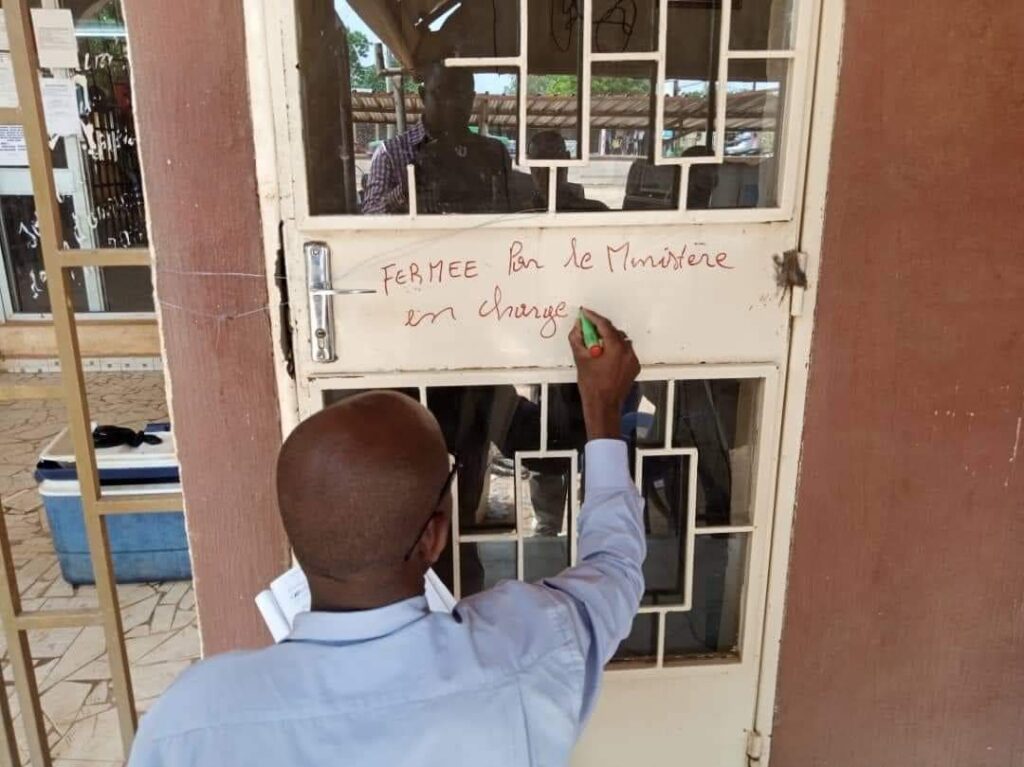 FERMEE Par le Ministère
en charge